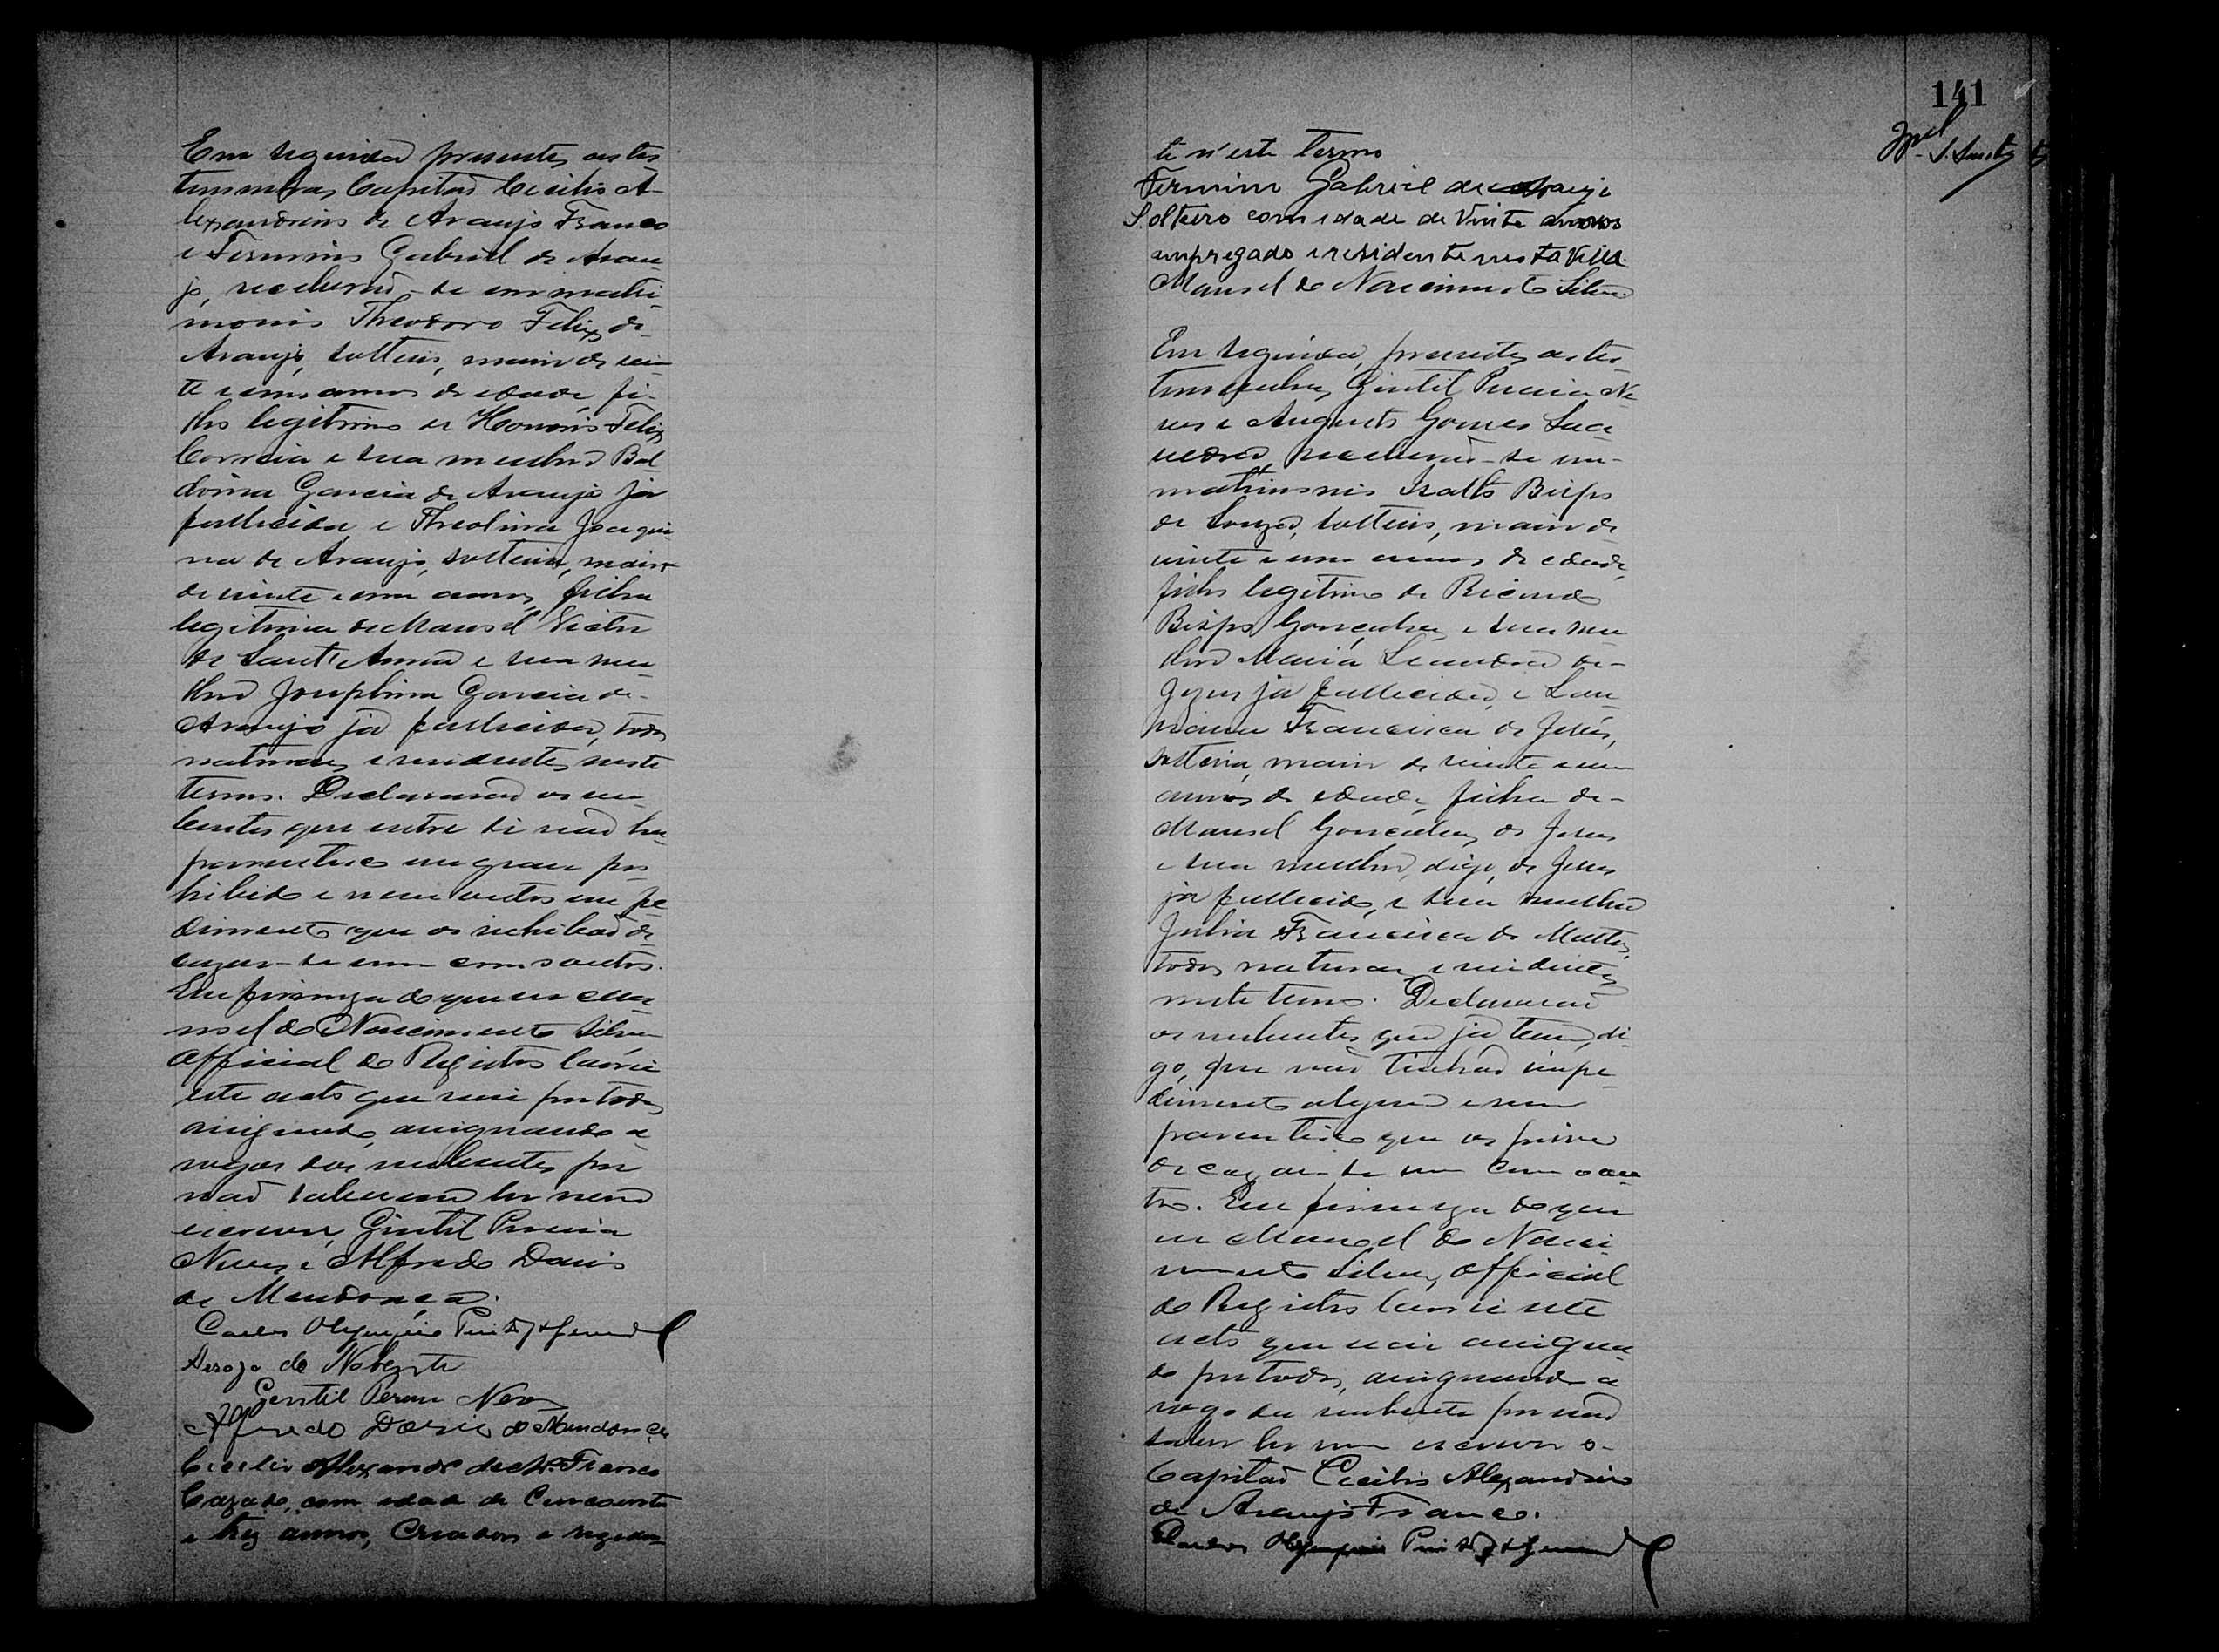 Em seguida presentes as tes
temunhas, Capitaõ Cicilio A-
lexandrino de Araujo Franco
e Firmino Gabriel de Arau
jo, receberaõ-se em matri
monio Theodoro Felix de
Araujo, solteiro, maior de vin
te e um annos de edade, fi-
lho legitimo de Honorio Felix
Correia e sua mulher Bal
doina Garcia de Araujo já
fallecida, e Theolina Joaqui
na de Araujo, solteira, maior
de vinte e um annos, filha
legitima de Manoel Victor
de Sant'Anna e sua mu
lher Josephina Garcia de
Araujo já fallecida, todos
naturaes e residentes neste
termo. Declararaõ os nu
bentes que entre si naõ ha
parentesco em grau pro
hibido e nem outro impe
dimento que os inhibaõ de
cazar-se um com o outro.
Em firmeza do que eu Ma
noel do Nascimento Silva
Official do Registro lavrei
este acto que vai por todos
assignado, assignando a
rogos dos nubentes por
naõ saberem ler nem
escrever, Gentil Pereira
Neves e Alfredo Dario
de Mendonça.
Carlos Olympio Pinto
A rogo do Nobente
Gentil Pereira Neves
Alfredo Dario de Mendonça
Cicilio Alexandre de A. Franco
Cazado, com edade de Cincoenta
e trez annos, Creador e rezeden
141
te n'este Termo
Firmino Gabriel de Araujo
Solteiro com idade de Vinte annos
empregado e residente nesta Villa
Manoel do Nascimento Silva
Em seguida, presentes as tes
temunhas, Gentil Pereira Ne
ves e Augusto Gomes
receberaõ-se em
matrimonio Izalto Bispo
de Souza, solteiro, maior de
vinte e um annos de edade,
filho legitimo de Ricardo
Bispo Gonçalves e sua mu
lher Maria Leandra de
Jezus já fallecida, e
Francisca de Jesus,
solteira, maior de vinte e um
annos de edade, filha de
Manoel Gonçalves de Jesus
e sua mulher, digo, de Jesus
já fallecido, e sua mulher
Julia Francisca de Mattos,
todos naturaes e residentes
neste termo. Declararaõ
os nubentes que já tem, di
go, que naõ tinhaõ impe
dimento algum e nem
parentesco que os prive
de cazar-se um com o ou
tro. Em firmeza do que
eu Manoel do Nasci
mento Silva, Official
do Registro lavrei este
acto que vai assigna
do por todos, assignando a
rogo da nubente por naõ
saber ler nem escrever o
Capitaõ Cicilio Alexandrino
de Araujo Franco.
Carlos Olympio Pinto